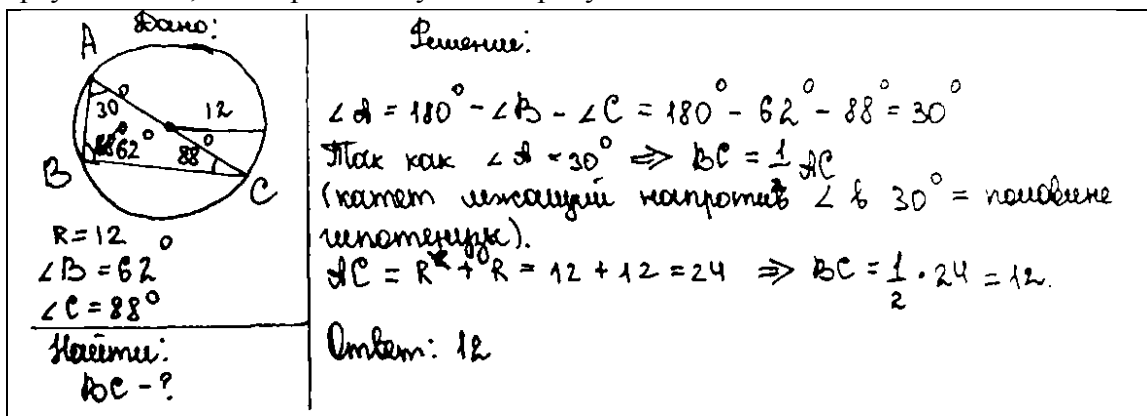 Дано:
A
30°
12
62°
88°
B
C
R = 12
∠B = 62°
∠C = 88°
Найти:
BC - ?
Решение:
∠A = 180° - ∠B - ∠C = 180° - 62° - 88° = 30°
Так как ∠A = 30° ⇒ BC = 1/2 AC
(катет лежащий напротив ∠ в 30° = половине
гипотенузы).
AC = R + R = 12 + 12 = 24 ⇒ BC = 1/2 · 24 = 12.
Ответ: 12